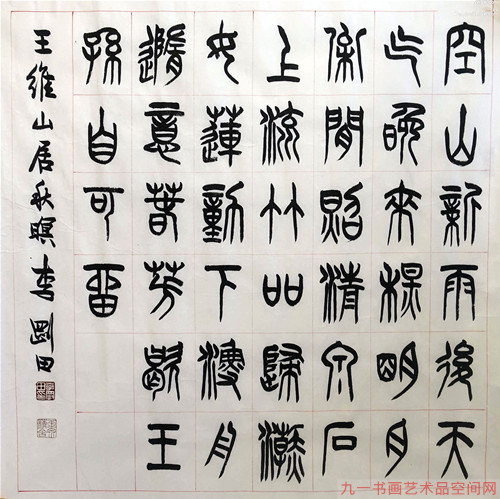 空山新雨後天
气晚來秋明月
松間照清泉石
上流竹吅歸澣
女蓮動下漁舟
隨意春芳歇王
孫自可留
王維山居秋暝 李剛田
九一书画艺术品空间网